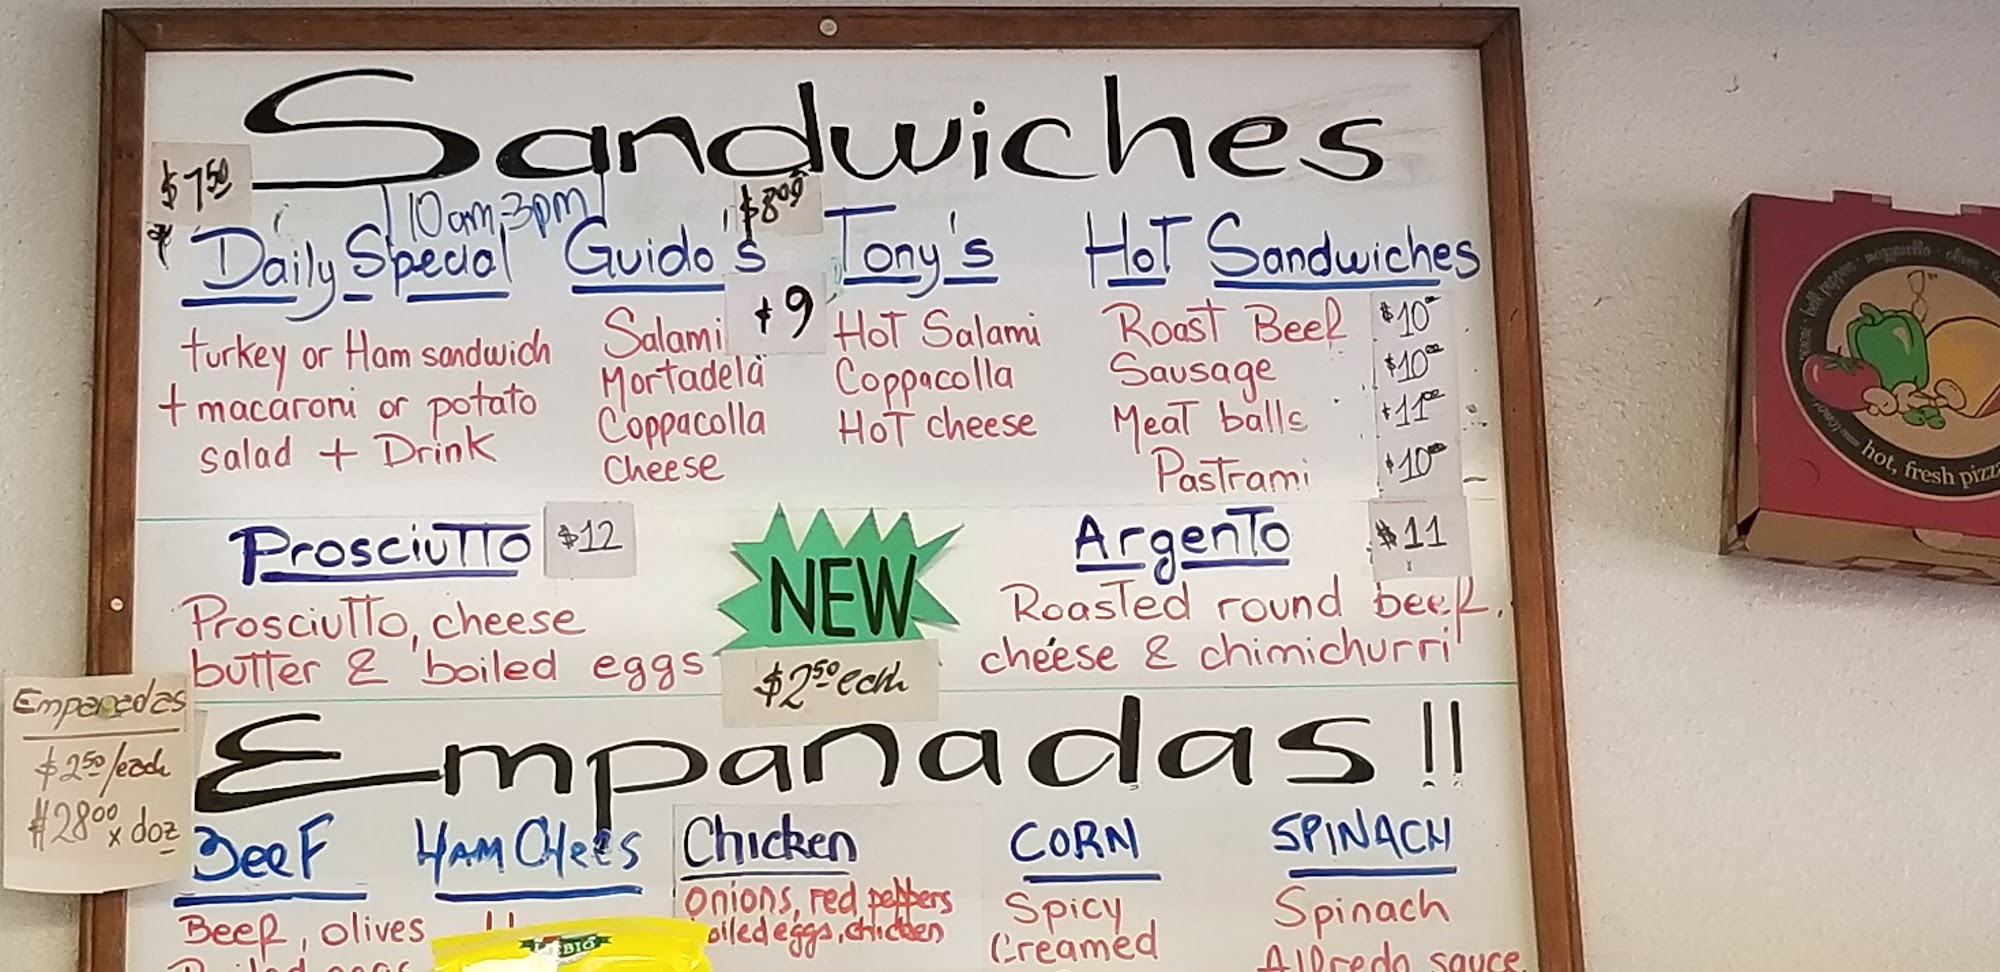 Sandwiches
$7.50
10am-3pm
$8.00
Daily Special
turkey or Ham sandwich
+ macaroni or potato
salad + Drink
Guido's
Salami
Mortadela
Coppacolla
cheese
$9
Tony's
Hot Salami
Coppacolla
Hot cheese
Hot Sandwiches
Roast Beef $10.00
Sausage $10.00
Meat balls $11.00
Pastrami $10.00
Prosciutto $12
Prosciutto, cheese
butter & boiled eggs
NEW
Argento $11
Roasted round beef,
cheese & chimichurri
$2.50 each
Empanadas!!
Empanadas
$2.50/each
$28.00 x doz
Beef
Beef, olives
Ham Chees
Chicken
onions, red peppers
boiled eggs, chicken
CORN
Spicy
Creamed
SPINACH
Spinach
Alfredo sauce
hot, fresh pizza